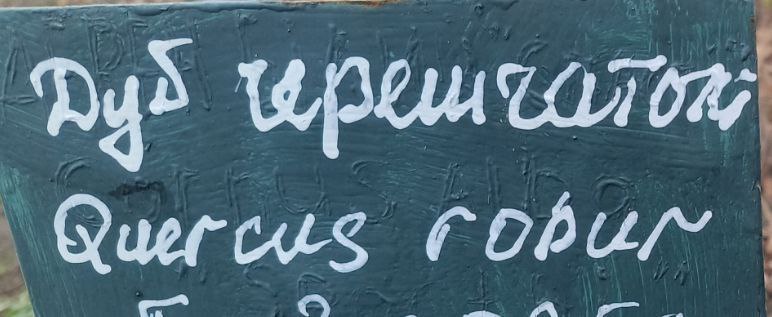 Дуб черешчатой
Quercus robur